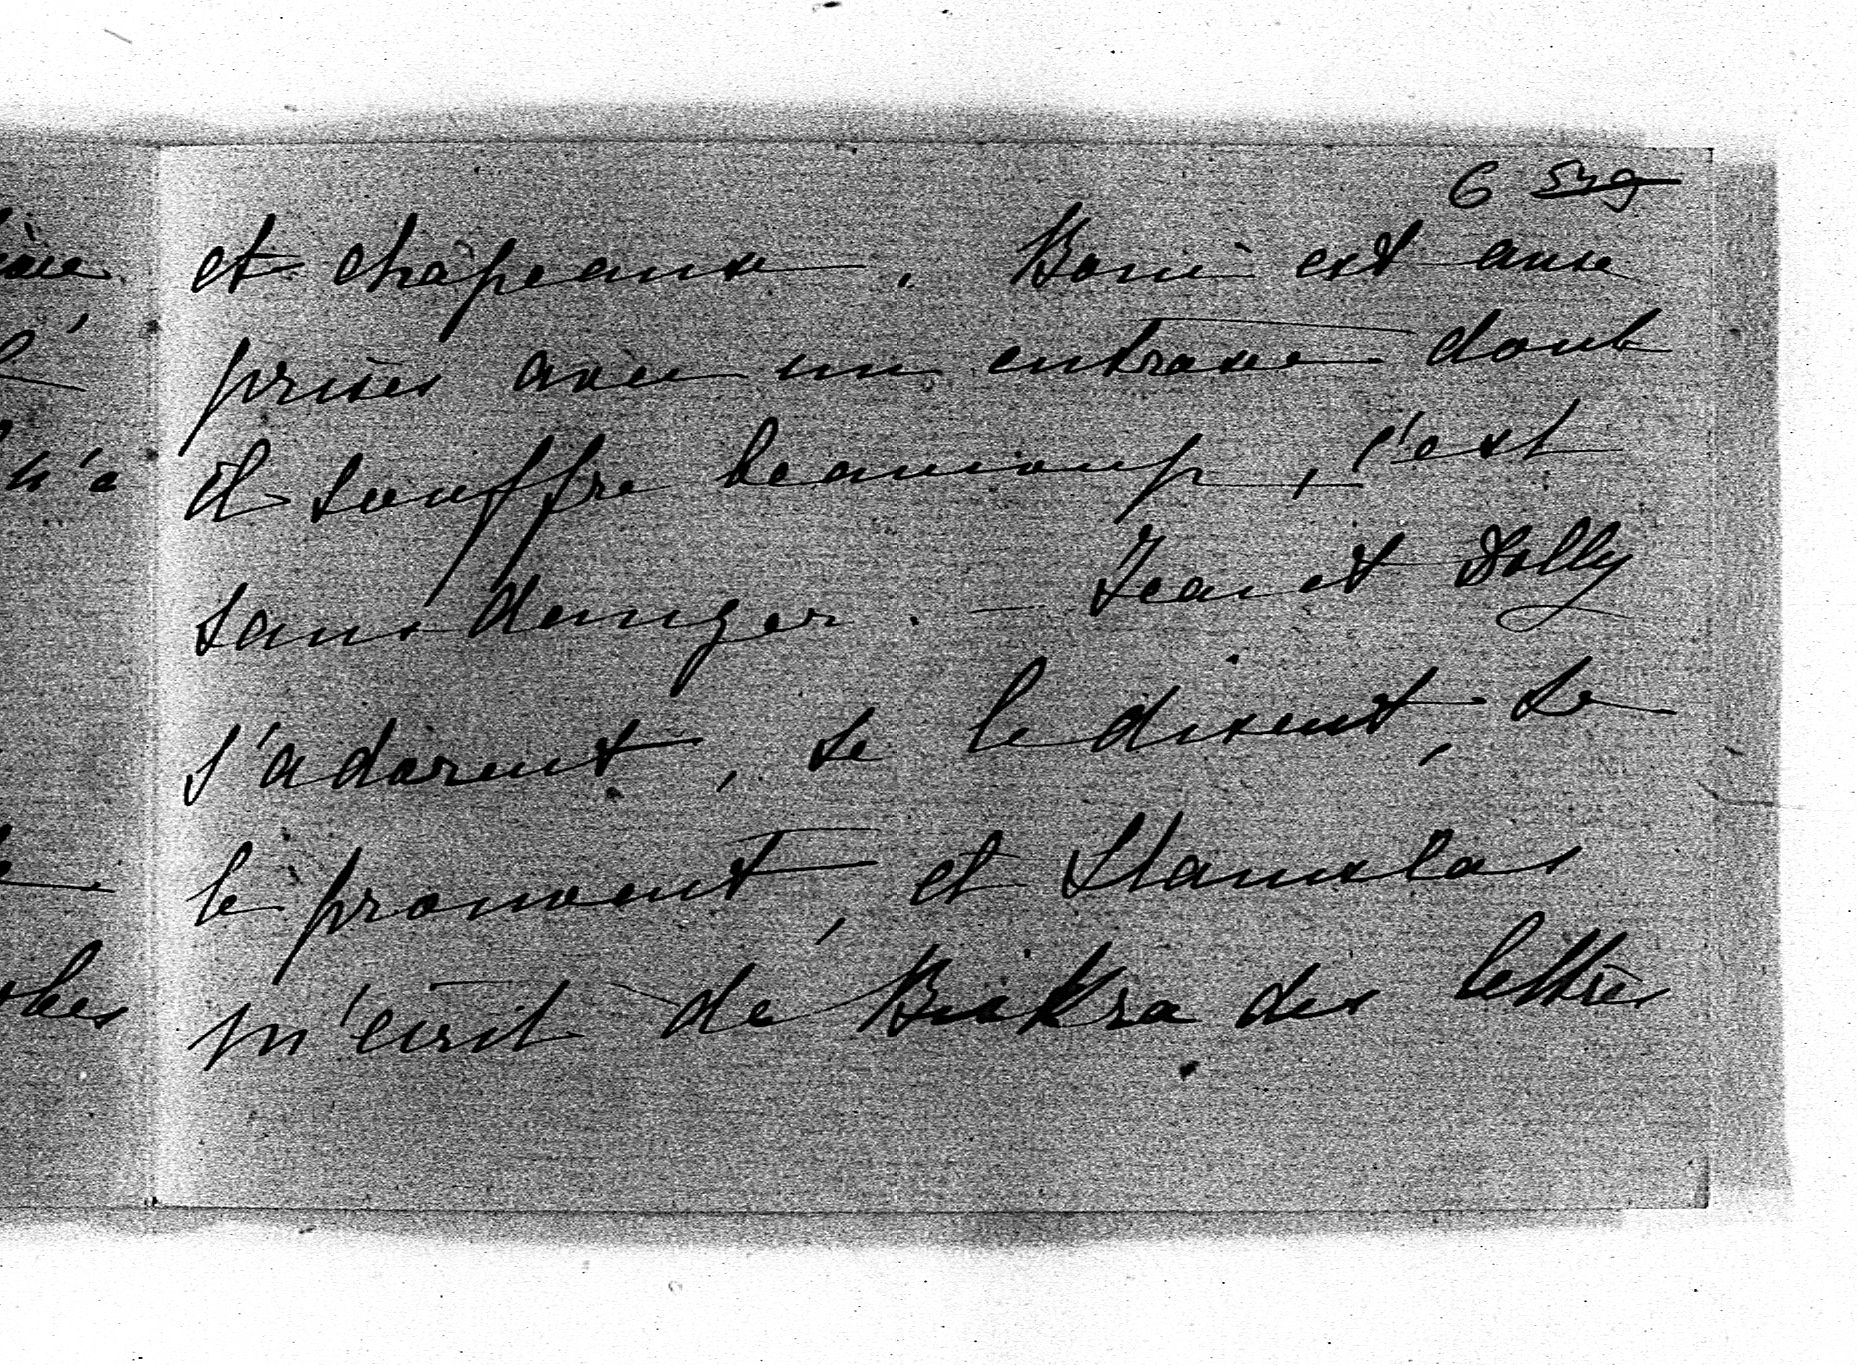 6 ~~519~~
et chapeaux. Boni est aux
prises avec un entraxe dont
il souffre beaucoup, c'est
sans danger. — Jean et Dolly
s'adorent, se le disent, se
le prouvent, et Stanislas
m'écrit de Biskra des lettres